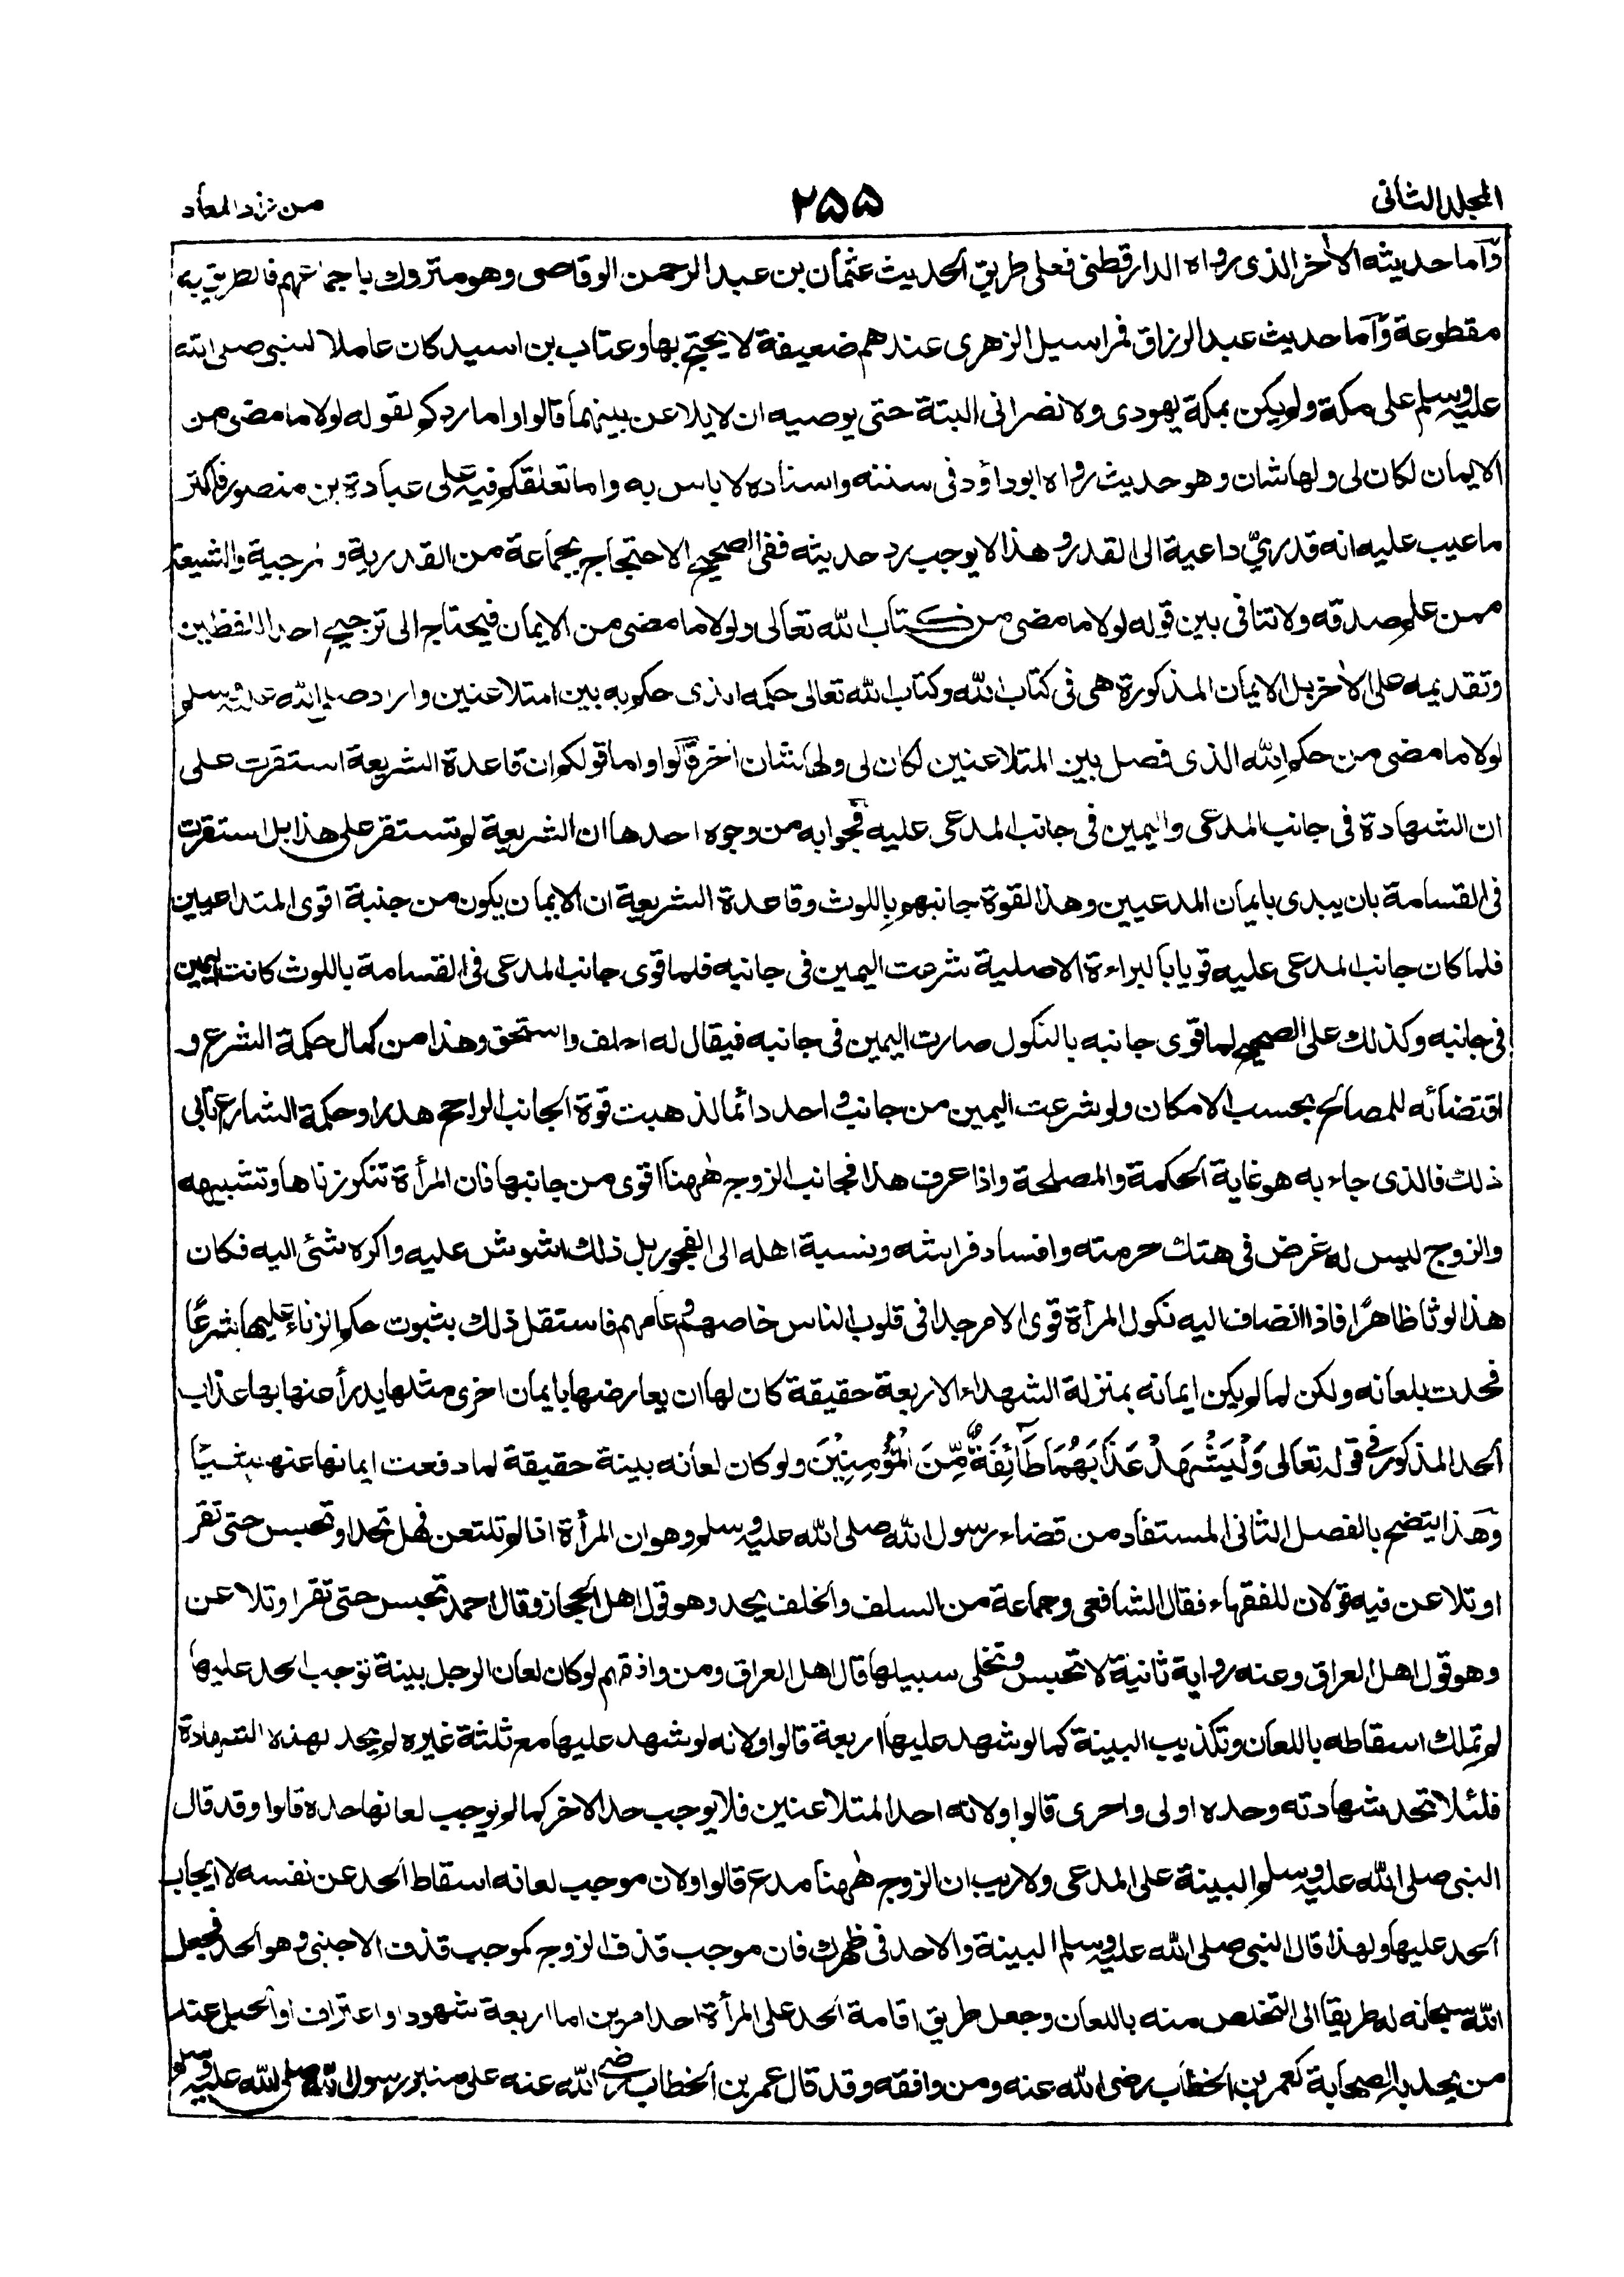 المجلد الثانى
۲۵۵
من زاد المعاد
وَاما حديثه الاٰخر الذى رواه الدارقطنى فعلى طريق الحديث عثمان بن عبد الرحمن الوقاصى وهو متروك باجماعهم فالطريق به
مقطوعة وَاما حديث عبد الرزاق فمراسيل الزهرى عندهم ضعيفة لا يحتج بها وعتاب بن اسيد كان عاملا للنبى صلى الله
عليه وسلم على مكة ولم يكن بمكة يهودى ولا نصرانى البتة حتى يوصيه ان لا يلاعن بينهما قالوا واما ردكم لقوله لولا ما مضى من
الايمان لكان لى ولها شان وهو حديث رواه ابو داؤد فى سننه واسناده لا باس به واما تعلقكم فيه على عبادة بن منصور فاكثر
ما عيب عليه انه قدرىّ داعية الى القدر وهذا لا يوجب رد حديثه ففى الصحيح الاحتجاج بجماعة من القدرية والمرجية والشيعة
ممن علم صدقه ولا تنافى بين قوله لولا ما مضى من كتاب الله تعالى ولولا ما مضى من الايمان فيحتاج الى ترجيح احد اللفظين
وتقديمه على الاٰخر بل الايمان المذكورة هى فى كتاب الله وكتاب الله تعالى حكمه الذى حكم به بين المتلاعنين واراد صلى الله عليه وسلم
لولا ما مضى من حكم الله الذى فصل بين المتلاعنين لكان لى ولها شان اٰخر قالوا واما قولكم ان قاعدة الشريعة استقرت على
ان الشهادة فى جانب المدعى واليمين فى جانب المدعى عليه فجوابه من وجوه احدها ان الشريعة لم تستقر على هذا بل استقرت
فى القسامة بان يبدى بايمان المدعيين وهذا لقوة جانبهم باللوث وقاعدة الشريعة ان الايمان يكون من جنبة اقوى المتداعيين
فلما كان جانب المدعى عليه قويا بالبراءة الاصلية شرعت اليمين فى جانبه فلما قوى جانب المدعى فى القسامة باللوث كانت اليمين
فى جانبه وكذلك على الصحيح لما قوى جانبه بالنكول صارت اليمين فى جانبه فيقال له احلف واستحق وهذا من كمال حكمة الشرع و
اقتضائه للمصالح بحسب الامكان ولو شرعت اليمين من جانب واحد دائما لذهبت قوة الجانب الراجح هدرا وحكمة الشارع تابى
ذلك فالذى جاء به هو غاية الحكمة والمصلحة واذا عرف هذا فجانب الزوج هٰهنا اقوى من جانبها فان المرأة تنكر زناها وتشبيهه
والزوج ليس له غرض فى هتك حرمته وافساد فراشه ونسبة اهله الى الفجور بل ذلك اشوش عليه واكره شئى اليه فكان
هذا لوثا ظاهرًا فاذا انضاف اليه نكول المرأة قوى الامر جدا فى قلوب الناس خاصهم وعامهم فاستقل ذلك بثبوت حكم الزناء عليها شرعًا
فحدت بلعانه ولكن لما لم يكن ايمانه بمنزلة الشهداء الاربعة حقيقة كان لها ان يعارضها بايمان اخرى مثلها يدرأ عنها بها عذاب
الحد المذكور فى قوله تعالى وَلْيَشْهَدْ عَذَابَهُمَا طَآئِفَةٌ مِّنَ الْمُؤْمِنِيْنَ ولو كان لعانه بينة حقيقة لما دفعت ايمانها عنها شيئا
وَهذا يتضح بالفصل الثانى المستفاد من قضاء رسول الله صلى الله عليه وسلم وهو ان المرأة اذا لم تلتعن فهل تحد او تحبس حتى تقر
او تلاعن فيه قولان للفقهاء فقال الشافعى وجماعة من السلف والخلف يحد وهو قول اهل الحجاز وقال احمد تحبس حتى تقر او تلاعن
وهو قول اهل العراق وعنه رواية ثانية لا تحبس وتخلى سبيلها قال اهل العراق ومن وافقهم لو كان لعان الرجل بينة توجب الحد عليها
لم تملك اسقاطه باللعان وتكذيب البينة كما لو شهد عليها اربعة قالوا ولانه لو شهد عليها مع ثلثة غيره لم يحد لهذه الشهادة
فلئلا تحد بشهادته وحده اولى واحرى قالوا ولانه احد المتلاعنين فلا يوجب حد الاخر كما لم يوجب لعانها حده قالوا وقد قال
النبى صلى الله عليه وسلم البينة على المدعى ولا ريب ان الزوج هٰهنا مدع قالوا ولان موجب لعانه اسقاط الحد عن نفسه لا ايجاب
الحد عليها ولهذا قال النبى صلى الله عليه وسلم البينة والا حد فى ظهرك فان موجب قذف الزوج كموجب قذف الاجنبى وهو الحد فجعل
الله سبحانه له طريقا الى التخلص منه باللعان وجعل طريق اقامة الحد على المرأة احد امرين اما اربعة شهود او اعتراف او الحبل عند
من يحد به الصحابة كعمر بن الخطاب رضى الله عنه ومن وافقه وقد قال عمر بن الخطاب رضى الله عنه على منبر رسول الله صلى الله عليه وسلم